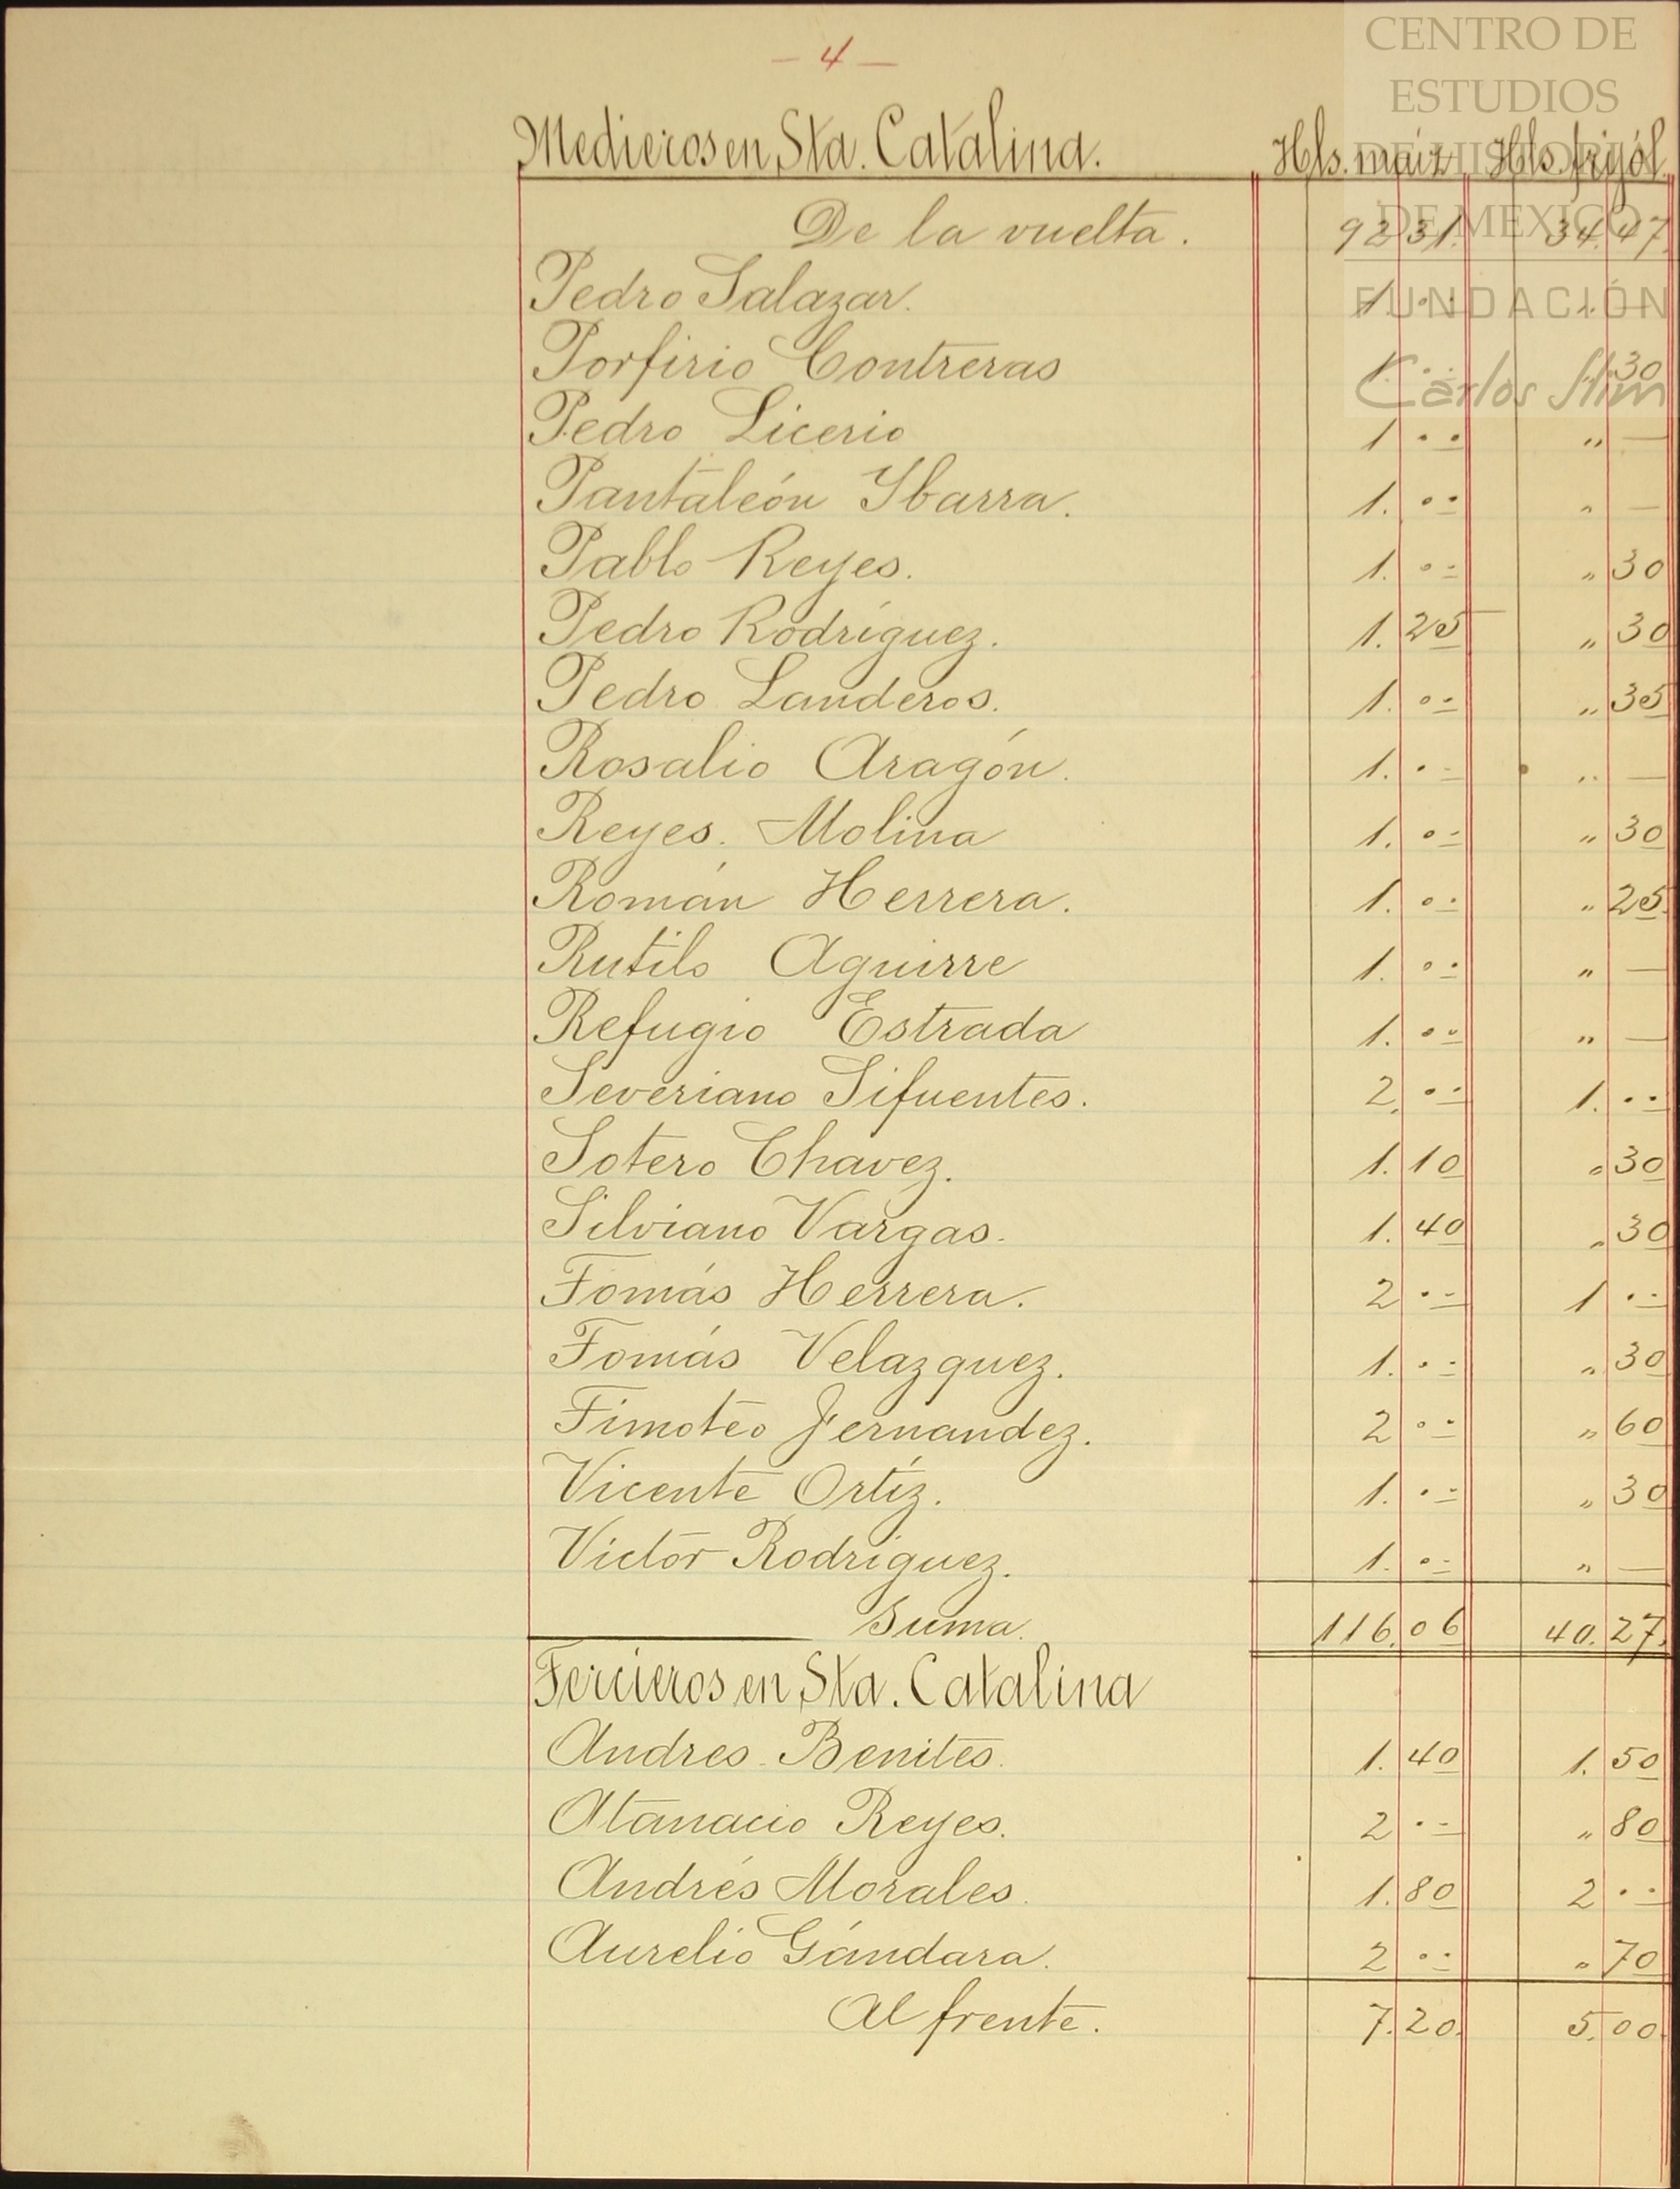 CENTRO DE
ESTUDIOS
DE HISTORIA
DE MEXICO
FUNDACIÓN
Carlos Slim
— 4 —
Medieros en Sta. Catalina. Hls. maíz Hls. frijól
De la vuelta. 92 31. 34. 47.
Pedro Salazar. 1. .. „ —
Porfirio Contreras 1 .. „ 30
Pedro Licerio 1 .. „ —
Pantaleón Ybarra. 1. .. „ —
Pablo Reyes. 1. .. „ 30
Pedro Rodríguez. 1. 25 „ 30
Pedro Landeros. 1. .. „ 35
Rosalio Aragón. 1. .. „ —
Reyes. Molina 1. .. „ 30
Román Herrera. 1. .. „ 25.
Rutilo Aguirre 1. .. „ —
Refugio Estrada 1. .. „ —
Severiano Sifuentes. 2. .. 1. ..
Sotero Chavez. 1. 10 „ 30
Silviano Vargas. 1. 40 „ 30
Tomás Herrera. 2 .. 1 ..
Tomás Velazquez. 1. .. „ 30
Timoteo Fernandez. 2 .. „ 60
Vicente Ortíz. 1. .. „ 30
Victor Rodríguez. 1. .. „ —
Suma. 116. 06 40. 27.
Tercieros en Sta. Catalina
Andres Benites. 1. 40 1. 50
Atanacio Reyes. 2 .. „ 80
Andrés Morales. 1. 80 2 ..
Aurelio Gándara. 2 .. „ 70
Al frente. 7. 20. 5. 00.